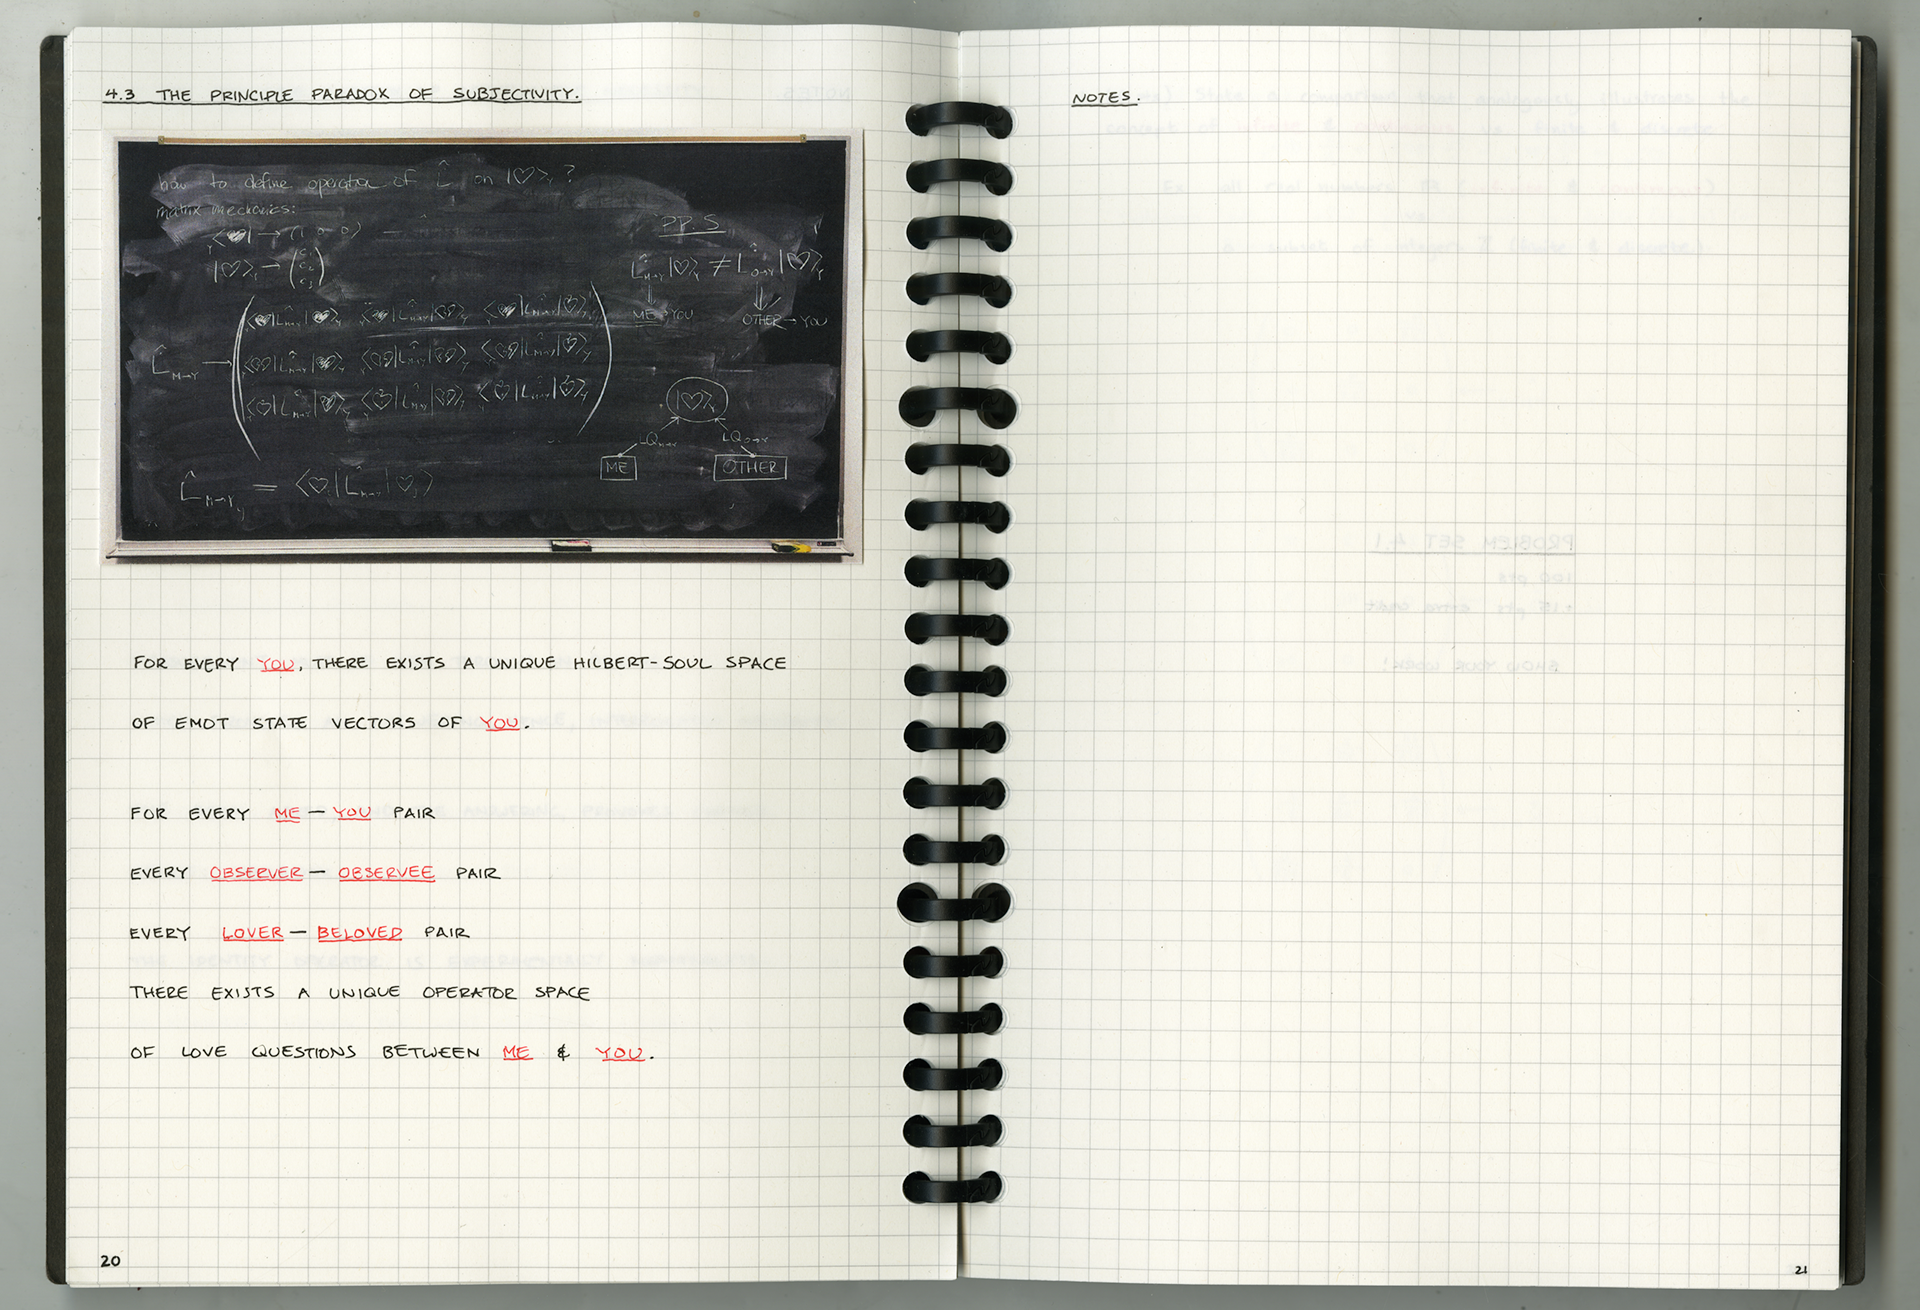 4.3 THE PRINCIPLE PARADOX OF SUBJECTIVITY.
how to define operation of L̂ on |♡>Y ?
matrix mechanics:
P.P.S
L̂M→Y |♡>Y ≠ L̂O→Y |♡>Y
ME → YOU
OTHER → YOU
L̂M→Y →
|♡>Y
LQM→Y
LQO→Y
ME
OTHER
FOR EVERY YOU, THERE EXISTS A UNIQUE HILBERT-SOUL SPACE
OF EMOT STATE VECTORS OF YOU.
FOR EVERY ME — YOU PAIR
EVERY OBSERVER — OBSERVEE PAIR
EVERY LOVER — BELOVED PAIR
THERE EXISTS A UNIQUE OPERATOR SPACE
OF LOVE QUESTIONS BETWEEN ME & YOU.
20
NOTES.
21